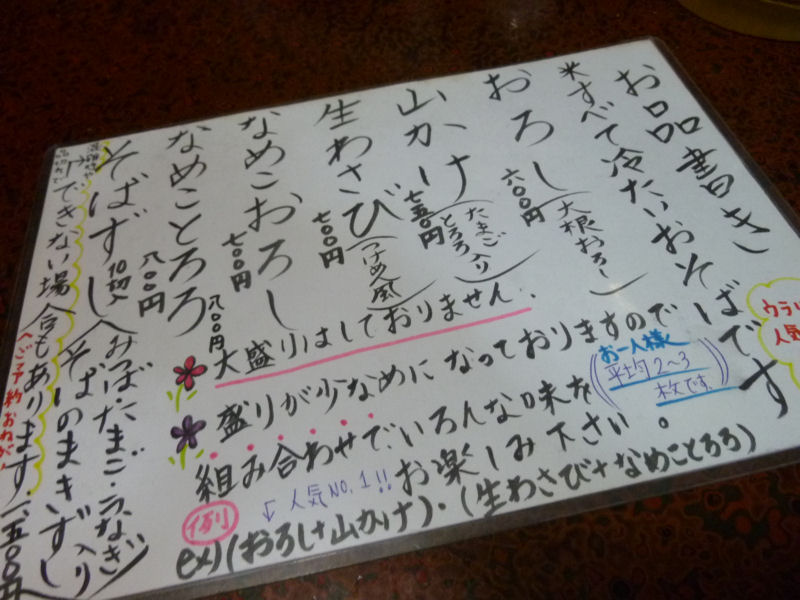 お品書き
※すべて冷たいおそばです
おろし(大根おろし)
六〇〇円
山かけ(たまごとろろ入り)
七五〇円
生わさび(つけめん風)
七〇〇円
なめこおろし
七〇〇円
なめことろろ
八〇〇円
そばずし(みつば・たまご・うなぎ入り)
10切入
八〇〇円
そばのまきずし
できない場合もあります
へご予約おねがい
一五〇〇円
大盛りはしておりません.
盛りが少なめになっておりますので
組み合わせで、いろんな味を
お楽しみ下さい。
お一人様
(平均2〜3枚です。)
↓人気NO.1!!
例
ex)(おろし+山かけ)・(生わさび+なめことろろ)
ウラ
人気